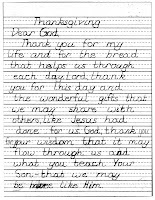 Thanksgiving
Dear God,
Thank you for my
life and for the bread
that helps us through
each day. Lord, thank
you for this day and
the wonderful gift that
we may share with
others, like Jesus had
done for us. God, thank you
for your wisdom that it may
flow through us and
what you teach Your
Son-that we may
be more like Him.